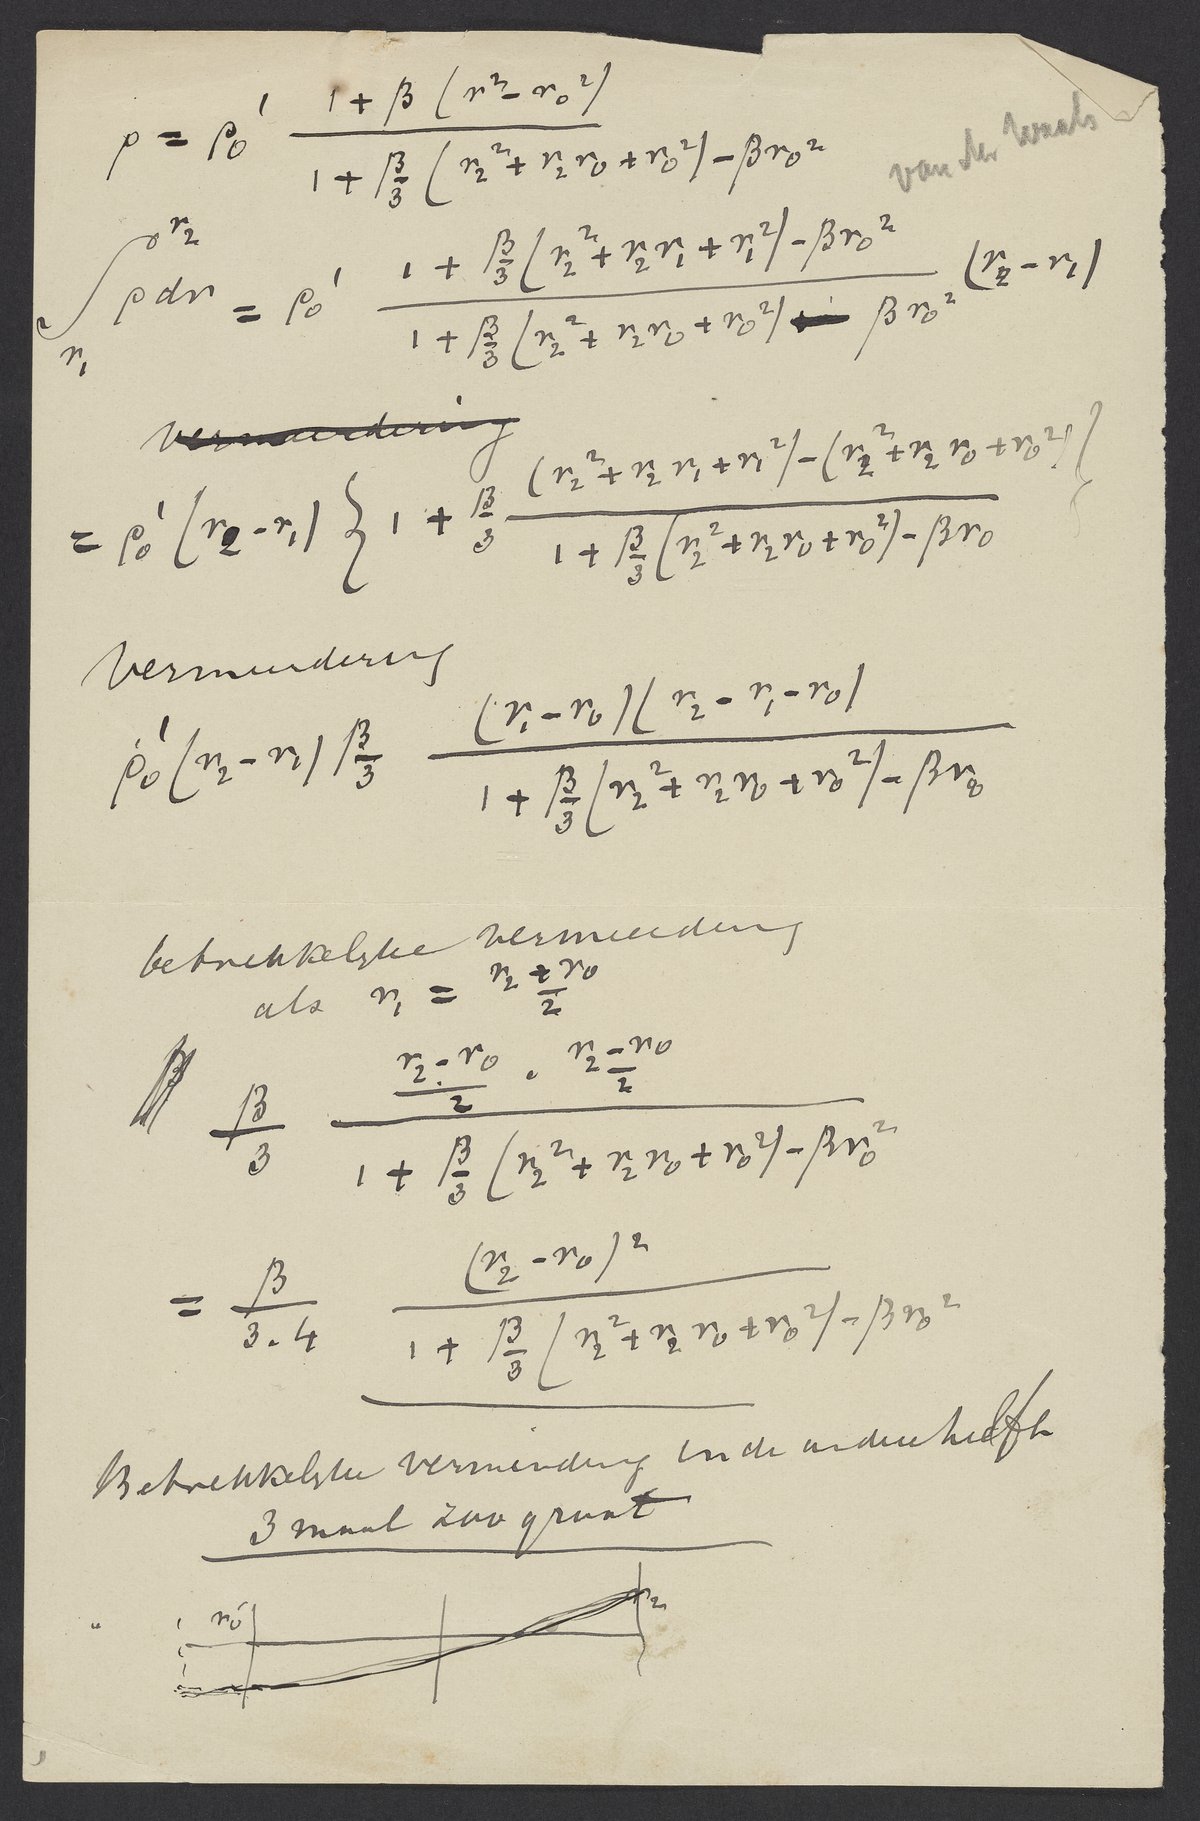 van der Waals
ρ = ρ₀' (1 + β (r² − r₀²)) / (1 + β/3 (r₂² + r₂r₀ + r₀²) − βr₀²)
∫ r₁ r₂ ρdr = ρ₀' (1 + β/3 (r₂² + r₂r₁ + r₁²) − βr₀²) / (1 + β/3 (r₂² + r₂r₀ + r₀²) − βr₀²) (r₂ − r₁)
vermeerdering
= ρ₀' (r₂ − r₁) { 1 + β/3 ((r₂² + r₂r₁ + r₁²) − (r₂² + r₂r₀ + r₀²)) / (1 + β/3 (r₂² + r₂r₀ + r₀²) − βr₀) }
Vermindering
ρ₀' (r₂ − r₁) β/3 (r₁ − r₀)(r₂ − r₁ − r₀) / (1 + β/3 (r₂² + r₂r₀ + r₀²) − βr₀²)
betrekkelijke vermindering
als r₁ = (r₂ + r₀)/2
β/3 ((r₂ − r₀)/2 · (r₂ − r₀)/2) / (1 + β/3 (r₂² + r₂r₀ + r₀²) − βr₀²)
= β/(3·4) (r₂ − r₀)² / (1 + β/3 (r₂² + r₂r₀ + r₀²) − βr₀²)
Betrekkelijke vermindering in de andere helft
3 maal zoo groot
r₀